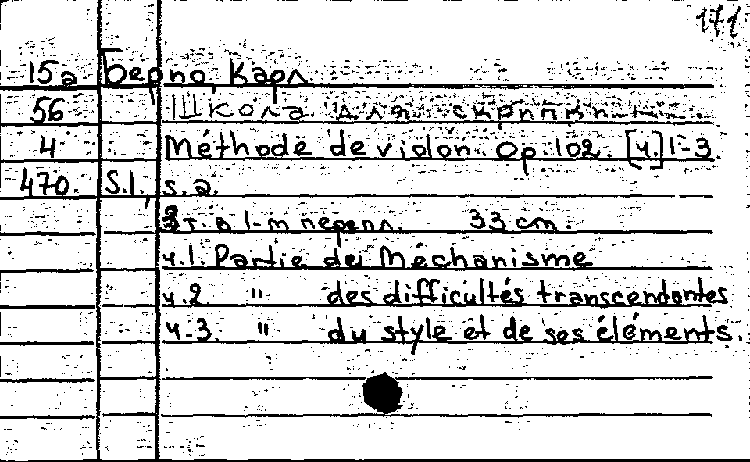 171
15a Берио, Карл
56 Школа для скрипки
4 Méthode de violon. Op. 102. [ч.] 1-3.
470. S.l., s.a.
3 т. в 1-м перепл. 33 cm.
ч.1. Partie de Méchanisme
ч.2 " des difficultés transcendantes
ч.3. " du style et de ses éléments.